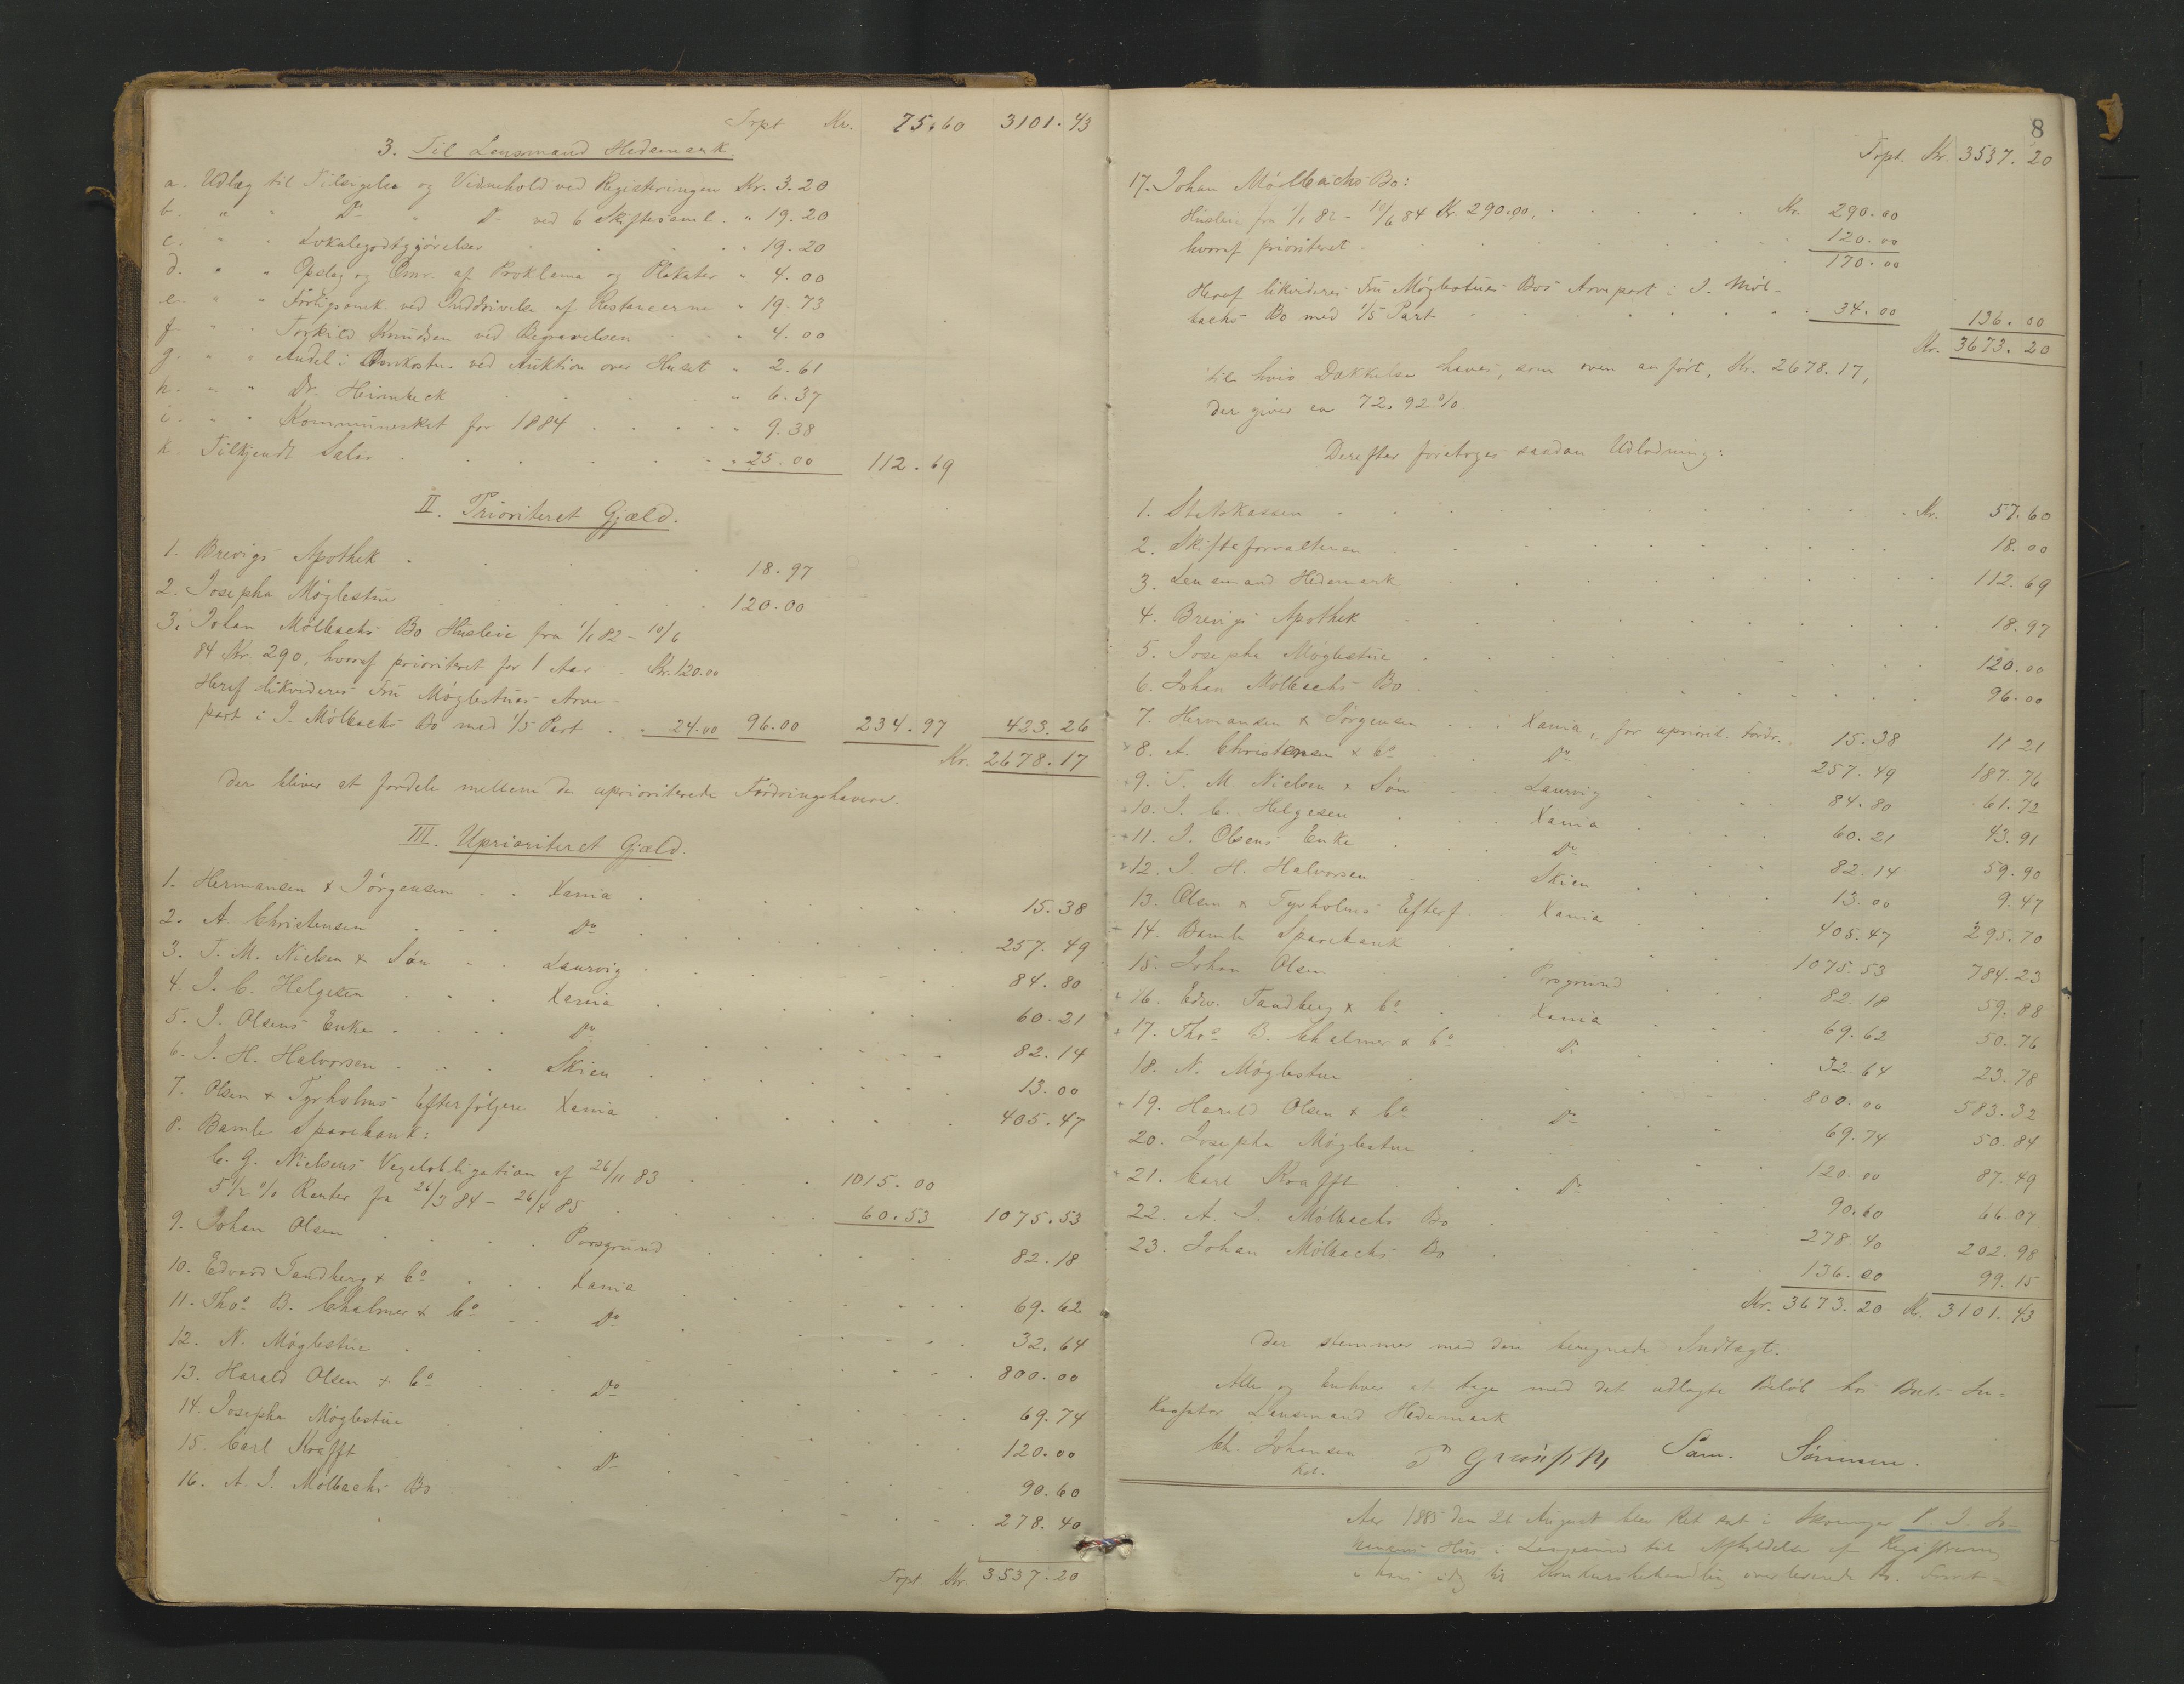 Trpt Kr. 75.60 3101.43
3. Til Lensmand Hedemark.
a. Udlæg til Tilsigelse og Vidnehold ved Registeringen Kr. 3.20
b. " " Do " Do ved 6 Skiftesaml. " 19.20
c. " " Lokalegodtgjörelser " 19.20
d. " " Opslag og Omr. af Proklama og Plakater " 4.00
e. " " ved Inddrivelse af Restancerne " 19.73
f " " Torkild Knudsen ved Begravelsen " 4.00
g. " " Andel i Omkostn. ved Auktion over Huset " 2.61
h. " " Dr. Heimbeck " 6.37
i. " " Kommuneskat for 1884 " 9.38
k. Tilkjendt Salær " 25.00 112.69
II. Prioriteret Gjæld.
1. Brevigs Apothek 18.97
2. Josepha Möglestue 120.00
3. Johan Mölbachs Bo Husleie fra 1/1 82 - 10/6
84 Kr. 290, hvoraf prioriteret for 1 Aar Kr. 120.00
Heraf likvideres Fru Möglestues Arve-
part i J. Mölbachs Bo med 1/5 Part 24.00 96.00 234.97 423.26
Kr. 2678.17
der bliver at fordele mellem de uprioriterede Fordringshavere.
III. Uprioriteret Gjæld.
1. Hermansen & Jörgensen Xania 15.38
2. A. Christensen Do 257.49
3. T. M. Nielsen & Sön Laurvig 84.80
4. J. C. Helgesen Xania 60.21
5. J. Olsens Enke Do 82.14
6. J. H. Halvorsen Skien 13.00
7. Olsen & Tyrholms Efterfölgere Xania 405.47
8. Bamle Sparebank:
C. G. Nielsens Vexelobligation af 26/11 83 1015.00
5 1/2 % Renter fra 26/3 84 - 26/4 85 60.53 1075.53
9. Johan Olsen Porsgrund 82.18
10. Edvard Tandberg & Co Xania 69.62
11. Thos B. Chalmer & Co Do 32.64
12. N. Möglestue 800.00
13. Harald Olsen & Co Do 69.74
14. Josepha Möglestue 120.00
15. Carl Krafft Do 90.60
16. A. J. Mölbachs Bo 278.40
Trpt Kr. 3537.20
8
Trpt. Kr. 3537.20
17. Johan Mölbachs Bo:
Husleie fra 1/1 82 - 10/6 84 Kr. 290.00. Kr. 290.00
hvoraf prioriteret 120.00
170.00
Heraf likvideres Fru Möglestues Bos Arvepart i J. Möl-
bachs Bo med 1/5 Part 34.00 136.00
Kr. 3673.20
til hvis Dækkelse haves, som oven anfört, Kr. 2678.17,
der giver en 72,92 %.
Derefter foretoges saadan Udlodning:
1. Statskassen Kr. 57.60
2. Skifteforvalteren 18.00
3. Lensmand Hedemark 112.69
4. Brevigs Apothek 18.97
5. Josepha Möglestue 120.00
6. Johan Mölbachs Bo 96.00
7. Hermansen & Jörgensen Xania, for upriorit. Fordr. 15.38 11.21
8. A. Christensen & Co Do 257.49 187.76
9. T. M. Nielsen & Sön Laurvig 84.80 61.72
10. J. C. Helgesen Xania 60.21 43.91
11. J. Olsens Enke Do 82.14 59.90
12. J. H. Halvorsen Skien 13.00 9.47
13. Olsen & Tyrholms Efterf. Xania 405.47 295.70
14. Bamle Sparebank 1075.53 784.23
15. Johan Olsen Porsgrund 82.18 59.88
16. Edw. Tandberg & Co Xania 69.62 50.76
17. Thos B. Chalmer & Co Do 32.64 23.78
18. N. Möglestue 800.00 583.32
19. Harald Olsen & Co Do 69.74 50.84
20. Josepha Möglestue 120.00 87.49
21. Carl Krafft Do 90.60 66.07
22. A. J. Mölbachs Bo 278.40 202.98
23. Johan Mölbachs Bo 136.00 99.15
Kr. 3673.20 Kr. 3101.43
der stemmer med den beregnede Indtægt.
Alle og Enhver at tage med det udlagte Belöb hos Boets In-
kassator Lensmand Hedemark.
Ch. Johansen Sam. Simonsen.
Kst.
Aar 1885 den 26 August blev Ret sat i
Hus i Langesund til Afholdelse af Registrering
i hans idag til Konkursbehandling overleverede Bo.